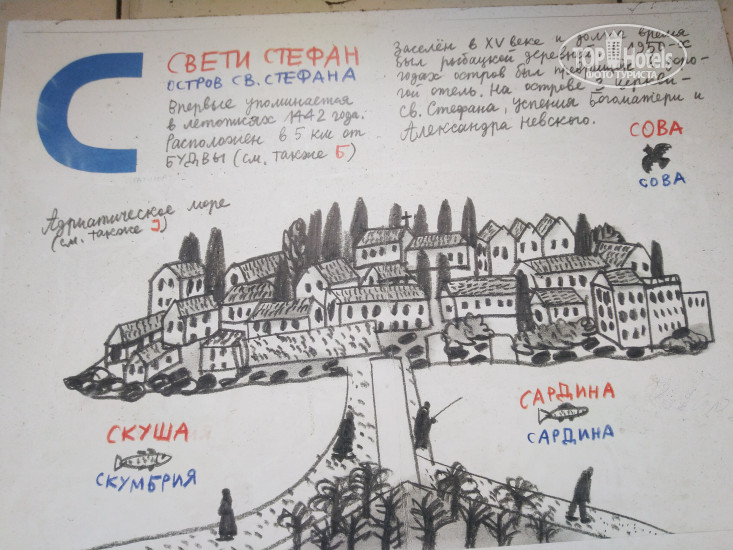 С
СВЕТИ СТЕФАН
ОСТРОВ СВ. СТЕФАНА
Впервые упоминается
в летописях 1442 года.
Расположен в 5 км от
БУДВЫ (см. также Б)
Заселён в XV веке и долгое время
был рыбацкой деревней. В 1950-х
годах остров был превращён в доро-
гой отель. На острове 3 церкви-
Св. Стефана, Успения Богоматери и
Александра Невского.
TOP Hotels
ФОТО ТУРИСТА
СОВА
СОВА
Адриатическое море
(см. также J)
СКУША
СКУМБРИЯ
САРДИНА
САРДИНА